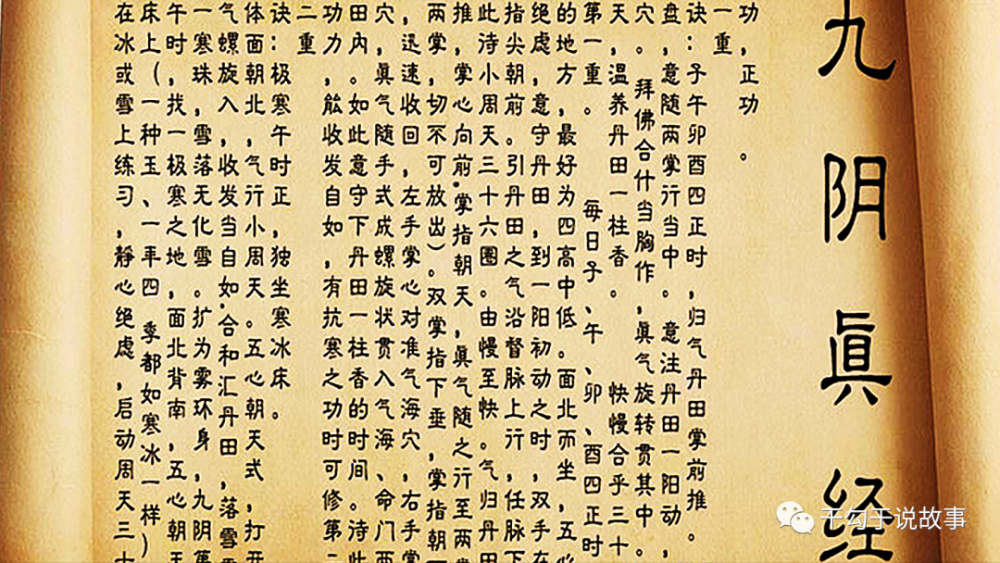 九阴眞经
功,正功。
一重
诀:子午卯酉四正时,归气丹田掌前推。
盘,意随两掌行当中。意注丹田一阳动,
穴。拜佛合什当胸作,眞气旋转贯其中。
天,温养丹田一柱香。快慢合乎三十
第一重。每日子、午、卯、酉四正时
的地方,最好为四高中低。面北而坐,五心
绝虑,意守丹田,到一阳初动之时,双手在
指尖朝前。引丹田之气沿督脉上行,任脉下
此诗小周天三十六圈。由慢至快。气归丹田
推,掌心向前,掌指朝天,眞气随之行至两
两掌,切不可放出)。双掌指下垂,掌指朝
,迅速收回,左手掌心对准气海穴,右手掌
穴,眞气随手式成螺旋状贯入气海、命门两
田内。如此意守下丹田一柱香的时间。诗此
功力,能收发自如,有抗寒之功时可修第二
二重
诀:极寒午时正,独坐寒冰床。
体面朝北,气行小周天。五心朝天式,打开
气螺旋入,收发当自如,合和汇丹田,落雪
一寒珠,雪落无化雪。扩为雾环身,九阴第
午时,找一极寒之地,面北背南,五心朝天
床上(一种玉、一年四季都如寒冰一样)
在冰或雪上练习,静心绝虑,启动周天三十
千勾于说故事